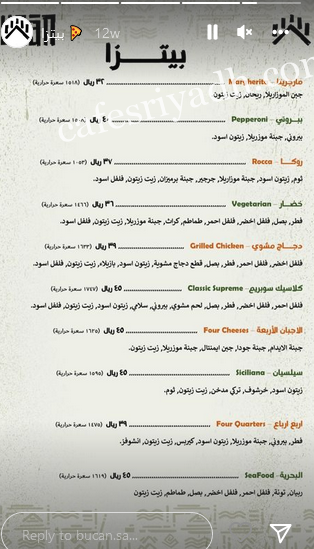 بيتزا 12w
بيتزا
مارجريتا - Margherita ٣٢ ريال (١٥١٨ سعرة حرارية)
جبن الموزاريلا, ريحان, زيت زيتون
بيبروني - Pepperoni ٤٠ ريال
بيروني, جبنة موزريلا, زيتون اسود.
روكا - Rocca ٣٧ ريال (١٠٥٣ سعرة حرارية)
ثوم, زيتون اسود, جبنة موزاريلا, جرجير, جبنة برميزان, زيت زيتون, فلفل اسود.
خضار - Vegetarian ٣٦ ريال (١٤٦٦ سعرة حرارية)
فطر, بصل, فلفل اخضر, فلفل احمر, طماطم, كراث, جبنة موزريلا, زيت زيتون, فلفل اسود.
دجاج مشوي - Grilled Chicken ٣٩ ريال (١٦٣٣ سعرة حرارية)
فلفل اخضر, فلفل احمر, فطر, بصل, قطع دجاج مشوية, زيتون اسود, بازيلاء, زيت زيتون, فلفل اسود.
كلاسيك سوبريم - Classic Supreme ٤٥ ريال (١٧٤٧ سعرة حرارية)
فلفل احمر, فلفل اخضر, فطر, بصل, لحم مشوي, بيروني, سلامي, زيتون اسود, زيت زيتون, فلفل اسود.
الاجبان الأربعة - Four Cheeses ٤٥ ريال (١٦٣٥ سعرة حرارية)
جبنة الايدام, جبنة جودا, جبن ايمنتال, جبنة موزريلا, زيت زيتون.
سيلسيان - Siciliana ٤٥ ريال (١٥٩٥ سعرة حرارية)
زيتون اسود, خرشوف, تركي مدخن, زيت زيتون, ثوم.
اربع ارباع - Four Quarters ٣٩ ريال (١٤٧٥ سعرة حرارية)
فطر, بيروني, جبنة موزريلا, زيتون اسود, كبريس, زيت زيتون, انشوفز.
البحرية - SeaFood ٤٥ ريال (١٦١٩ سعرة حرارية)
ربيان, تونة, فلفل احمر, فلفل اخضر, بصل, طماطم, زيت زيتون
Reply to bucan.sa...